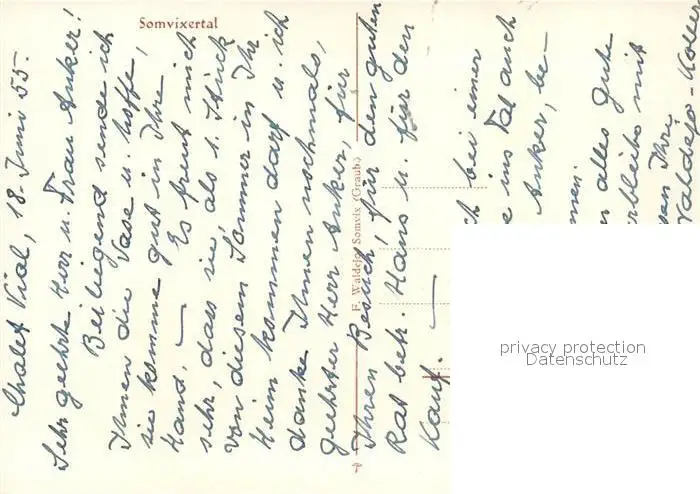 Somvixertal
F. Waldejo, Somvix (Graub.)
Chalet Vial, 18. Juni 55.
Sehr geehrte Herr u. Frau Anker!
Beiliegend sende ich
Ihnen die Vase u. hoffe,
sie komme gut in Ihre
Hand. — Es freut mich
sehr, dass sie, als 1. Stück
von diesem Sommer in Ihr
Heim kommen darf u. ich
danke Ihnen nochmals,
geehrter Herr Anker, für
Ihren Besuch, für den guten
Rat betr. Haus u. für den
Kauf. —
ch bei einer
e ins Tal auch
Anker, be-
men.
n alles gute
erbleibe mit
sen Ihre
Valdejo-Koller
privacy protection
Datenschutz